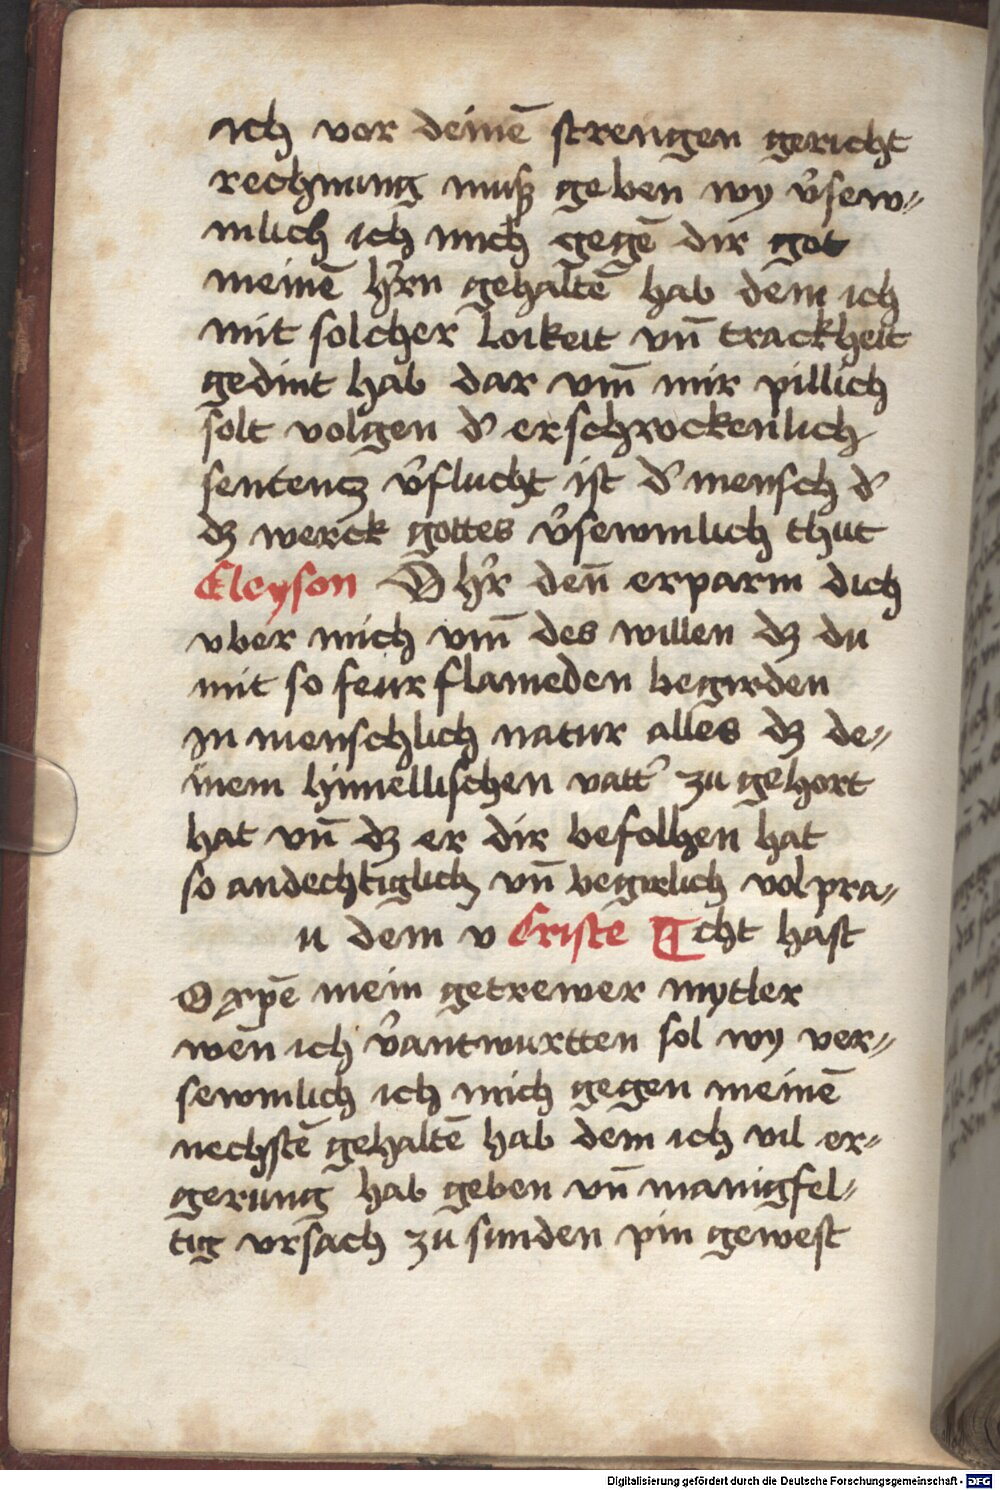 ich vor deinē strengen gericht
rechnung muß geben wy v̉sew〃
mlich ich mich gegē dir got
meinē hr̉n gehaltē hab dem ich
mit solcher loikeit vn̄ trackheit
gedint hab dar vm̄ mir pillich
solt volgen d̉ erschrockenlich
sentencz v̉flucht ist d̉ mensch d̉
dz werck gottes v̉sewmlich thut
Eleyson O hr̉ den̄ erparm dich
vber mich vm̄ des willen dz du
mit so feur flameden begirden
in menschlich natur alles dz de〃
inem himellischen vatt̉ zu gehort
hat vn̄ dz er dir befolhen hat
so andechtiglich vn̄ begirlich volpra〃
u dem v Criste cht hast
O xp̄e mein getrewer mytler
wen ich v̉antwurtten sol wy ver〃
sewmlich ich mich gegen meinē
nechstē gehaltē hab dem ich vil er〃
gerung hab geben vn̄ manigfel〃
tig vrsach zu sunden pin gewest
Digitalisierung gefördert durch die Deutsche Forschungsgemeinschaft - DFG